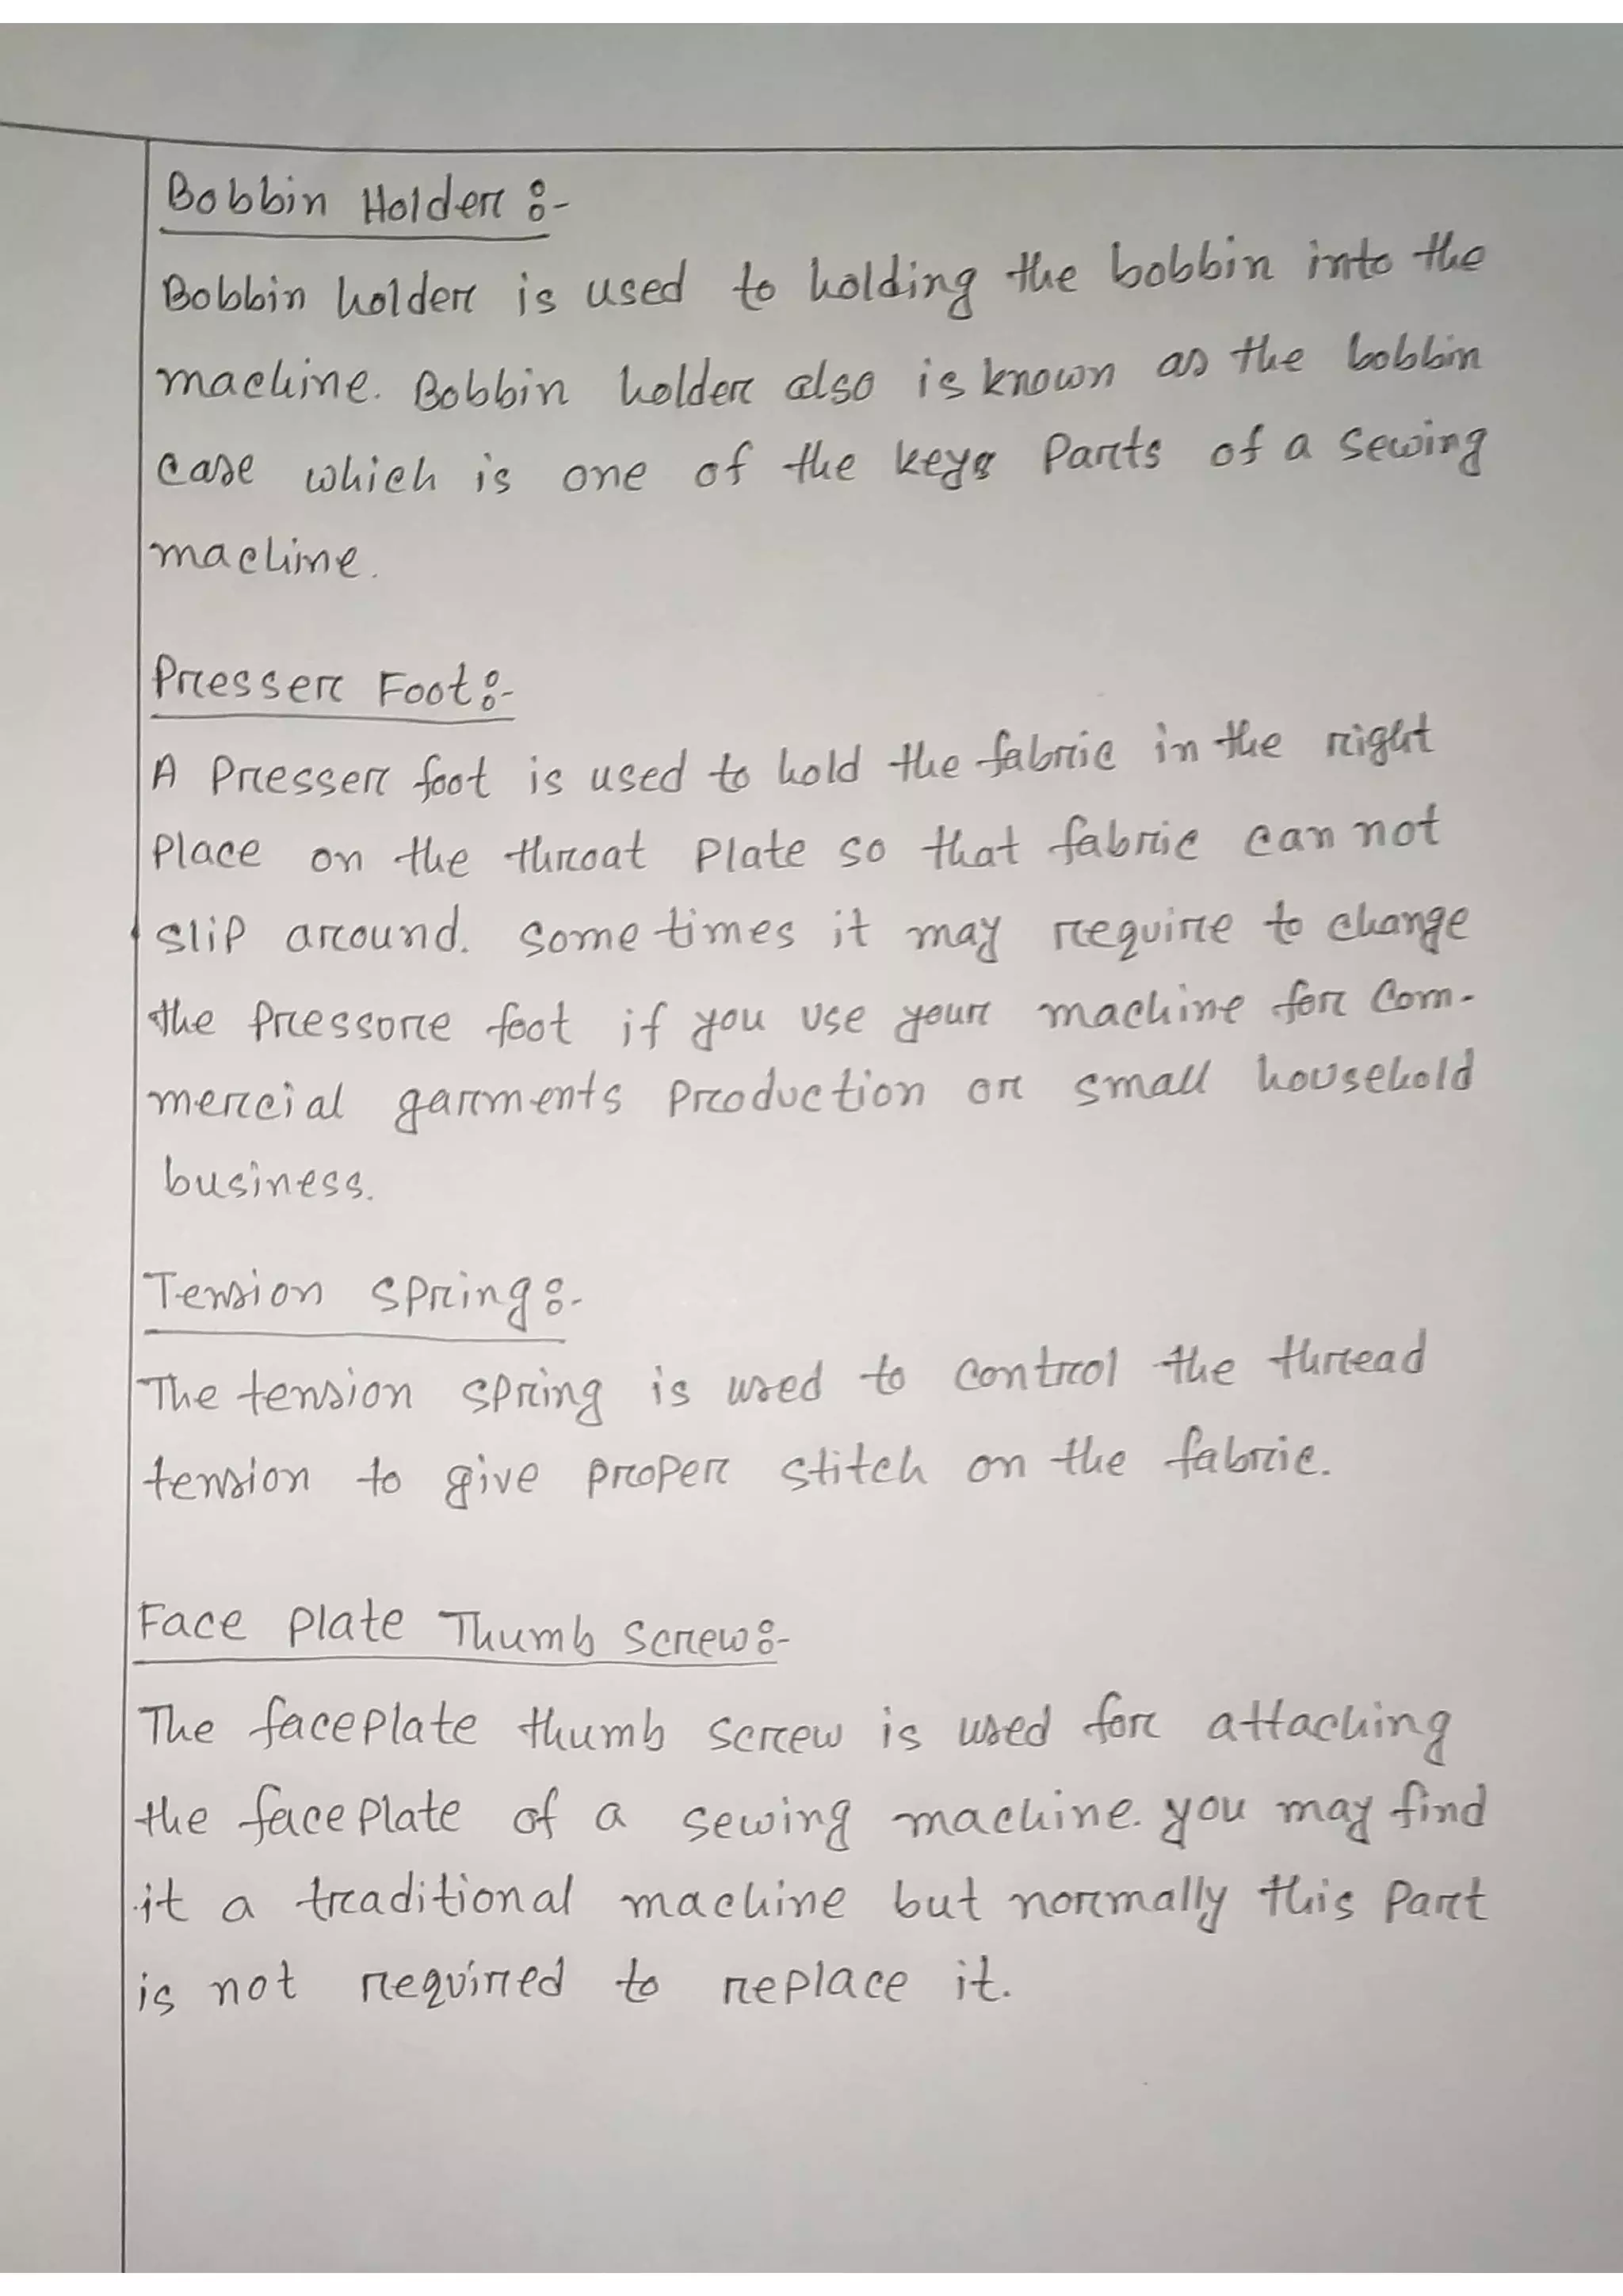 Bobbin Holder :-
Bobbin holder is used to holding the bobbin into the
machine. Bobbin holder also is known as the bobbin
case which is one of the keys Parts of a sewing
machine.
Presser Foot :-
A Presser foot is used to hold the fabric in the right
Place on the throat Plate so that fabric can not
slip around. Some times it may require to change
the Pressore foot if you use your machine for Com-
mercial garments Production or small household
business.
Tension Spring :-
The tension spring is used to control the thread
tension to give proper stitch on the fabric.
Face Plate Thumb Screw :-
The faceplate thumb screw is used for attaching
the face Plate of a sewing machine. you may find
it a traditional machine but normally this Part
is not required to replace it.